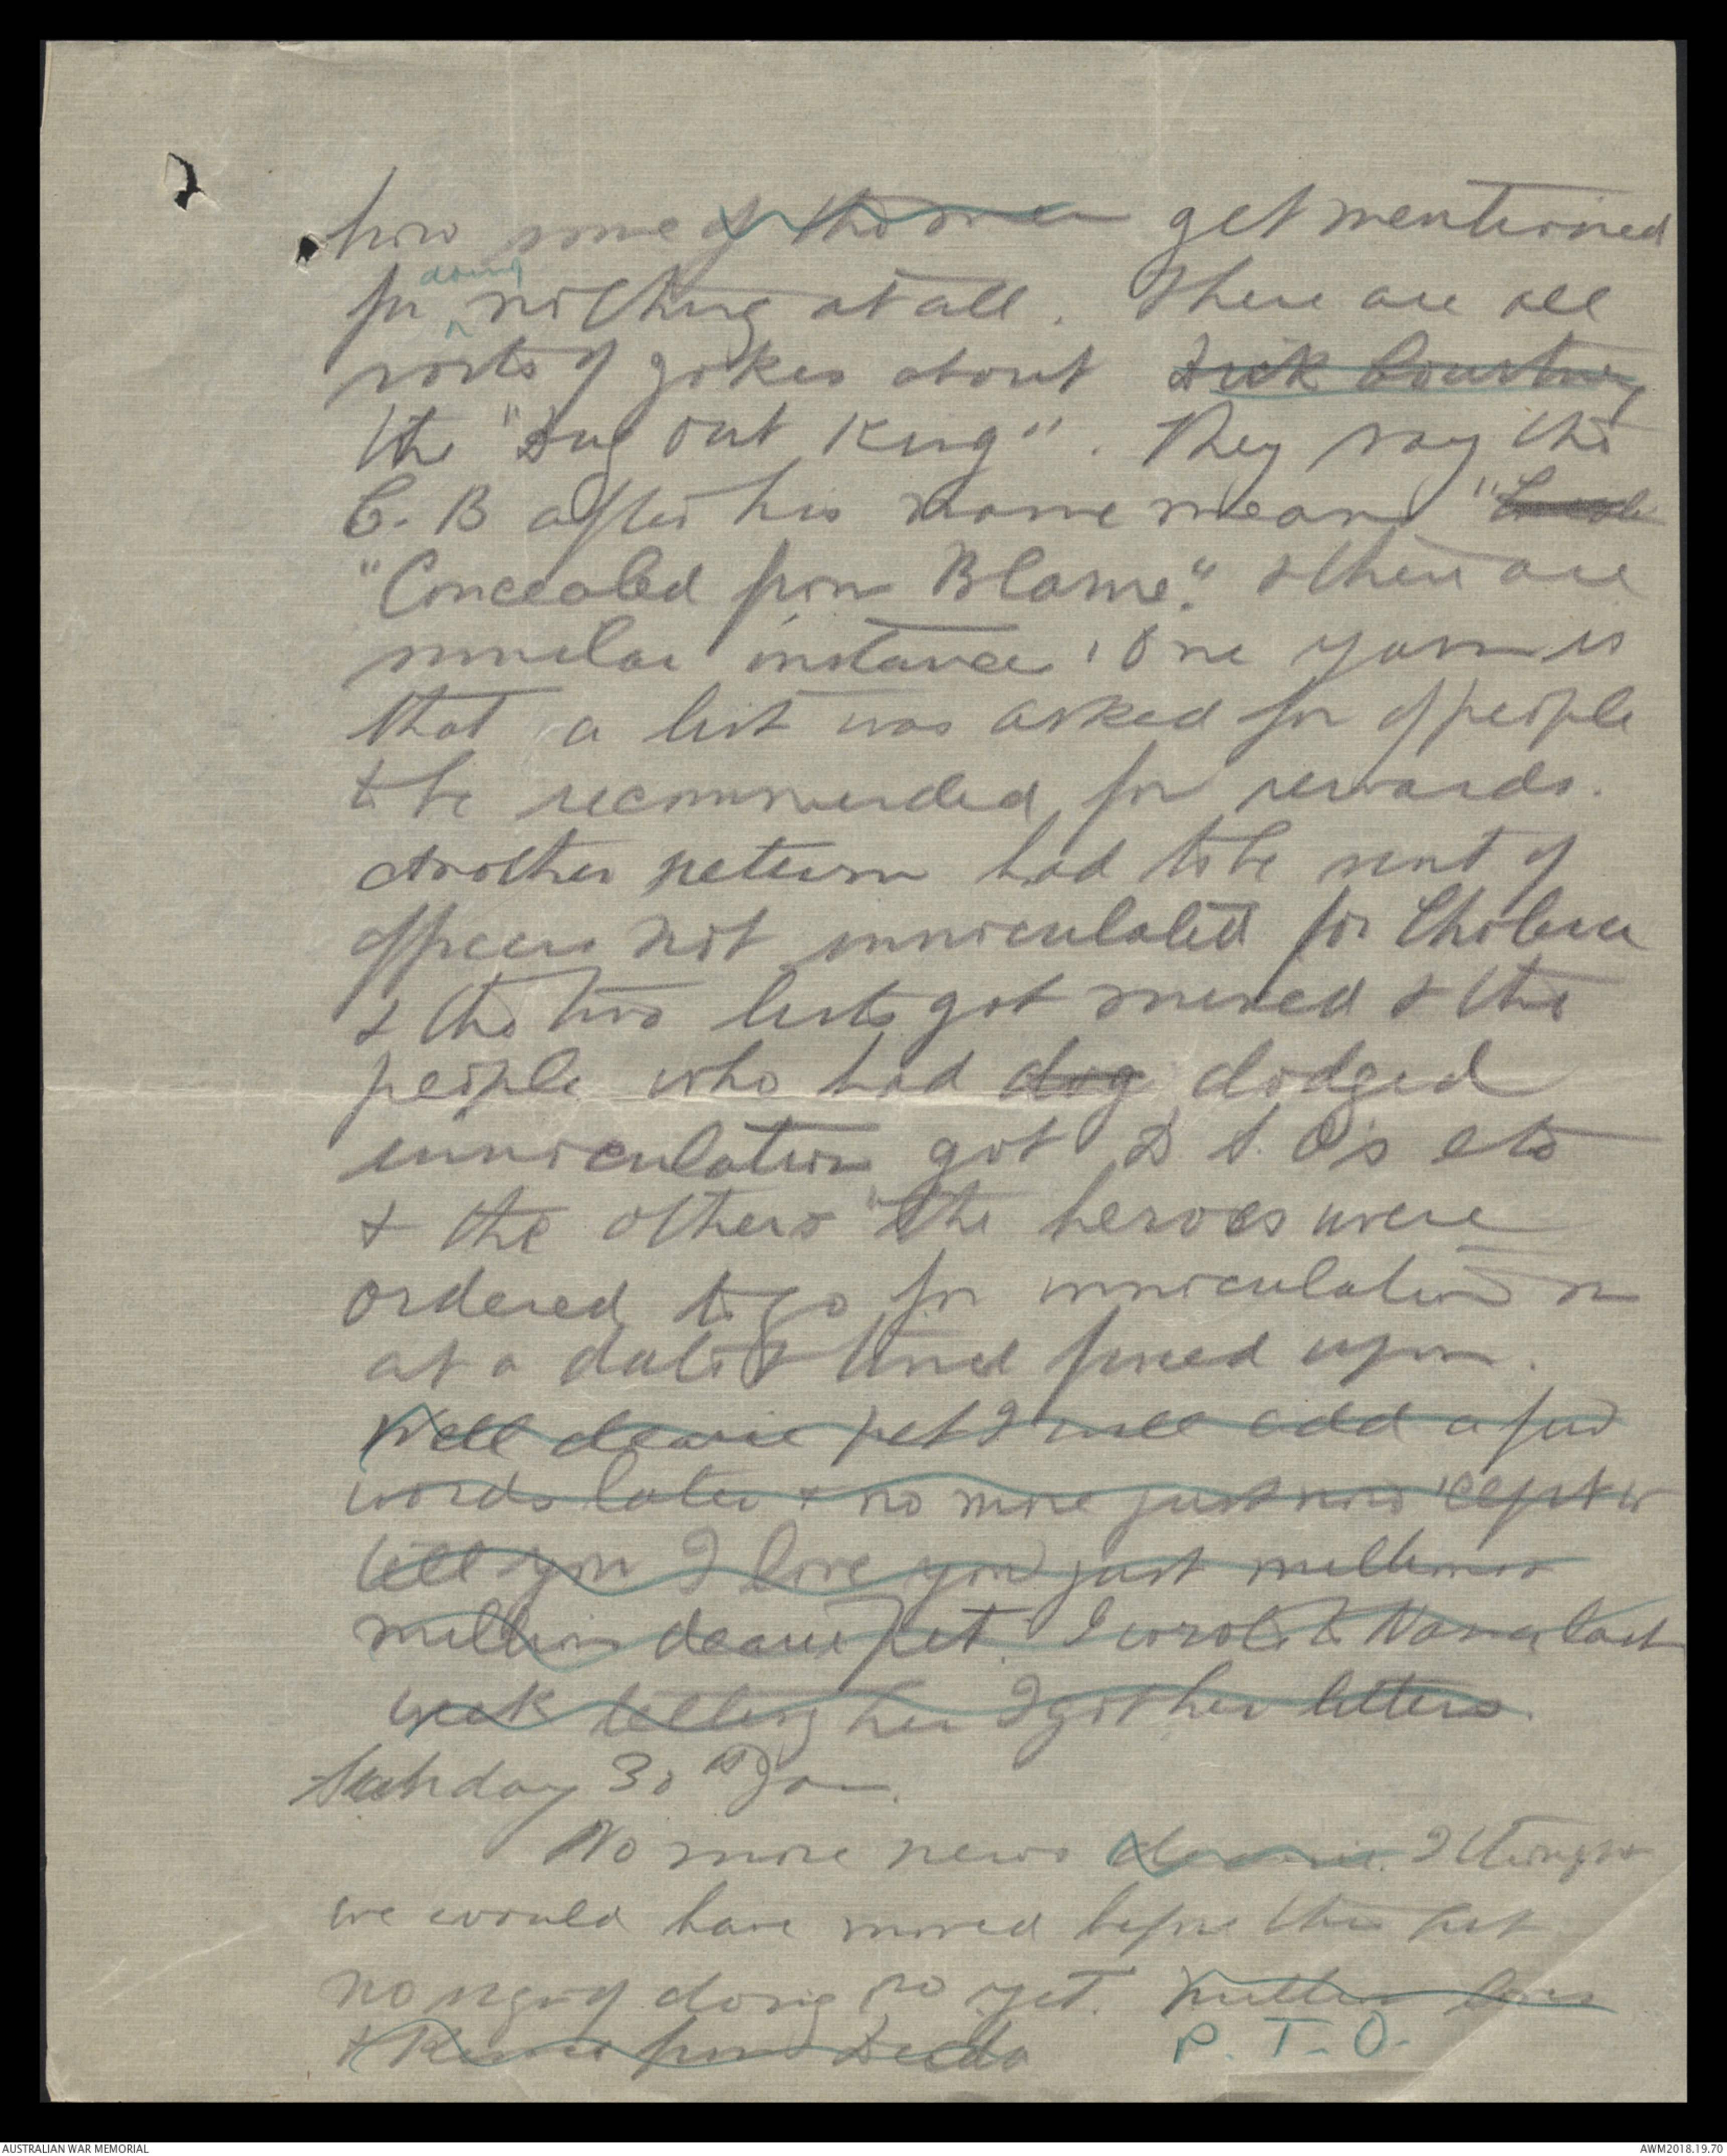 how some of the men get mentioned
for doing nothing at all. There are all
sorts of jokes about Dick Courtney
the "Dug out King". They say the
C. B after his name means "Conceale
"Concealed from Blame." & there are
similar instances. One yarn is
that a list was asked for of people
to be recommended for rewards.
Another return had to be sent of
officers not innoculated for Cholera
& the two lists got mixed & the
people who had dog dodged
innoculation got D. S. O's etc
& the others "the heroes were
ordered to go for innoculation on
at a date & time fixed upon.
Well dearie pet I will add a few
words later & no more just now 'cept to
tell you I love you just millions
millions dearie pet. I wrote to Nana last
week telling her I got her letters.
Saturday 30th Jan.
No more news dearie. I thought
we would have moved before this but
no sign of doing so yet. Million loves
& kisses from Dida
P. T. O.
AUSTRALIAN WAR MEMORIAL
AWM2018.19.70